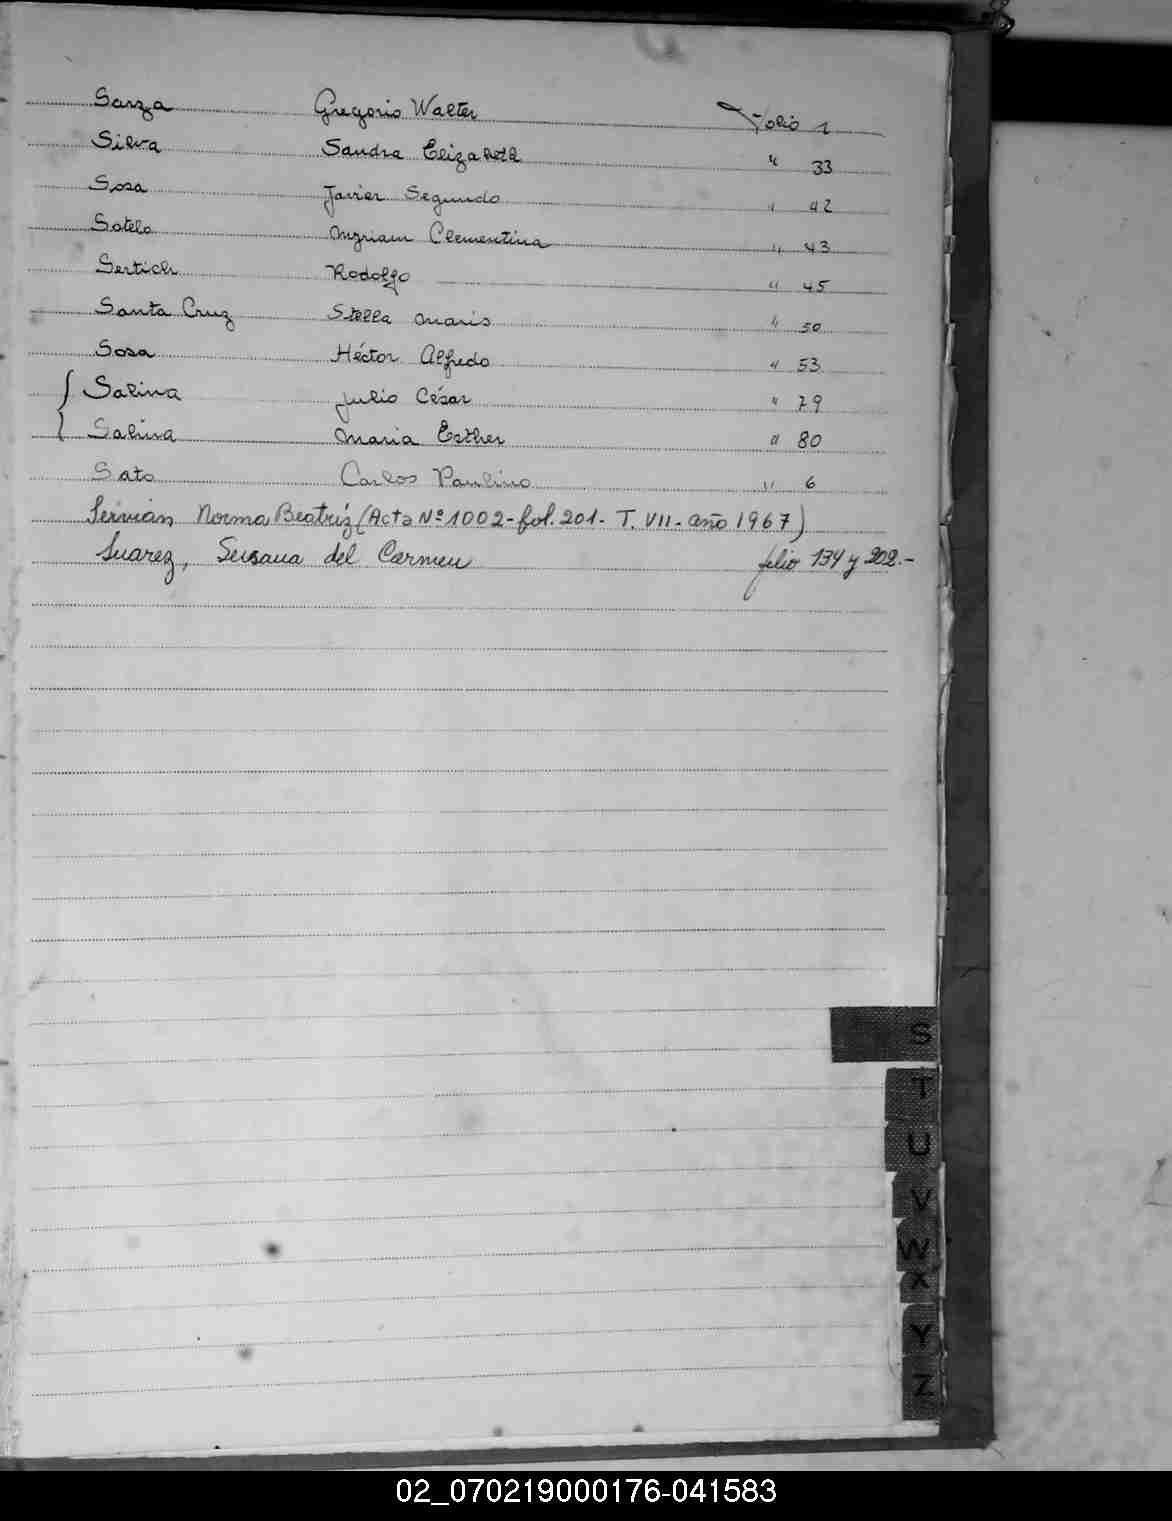 Sarza Gregorio Walter Folio 1
Silva Sandra Elizabeth " 33
Sosa Javier Segundo " 42
Sotelo Myriam Clementina " 43
Sertich Rodolfo " 45
Santa Cruz Stella Maris " 50
Sosa Héctor Alfredo " 53
Salina Julio César " 79
Salina Maria Esther " 80
Sato Carlos Paulino " 6
Servián Norma Beatriz (Acta Nº 1002-fol. 201- T. VII- año 1967)
Suarez, Susana del Carmen folio 134 y 202.-
S
T
U
V
W
X
Y
Z
02_070219000176-041583